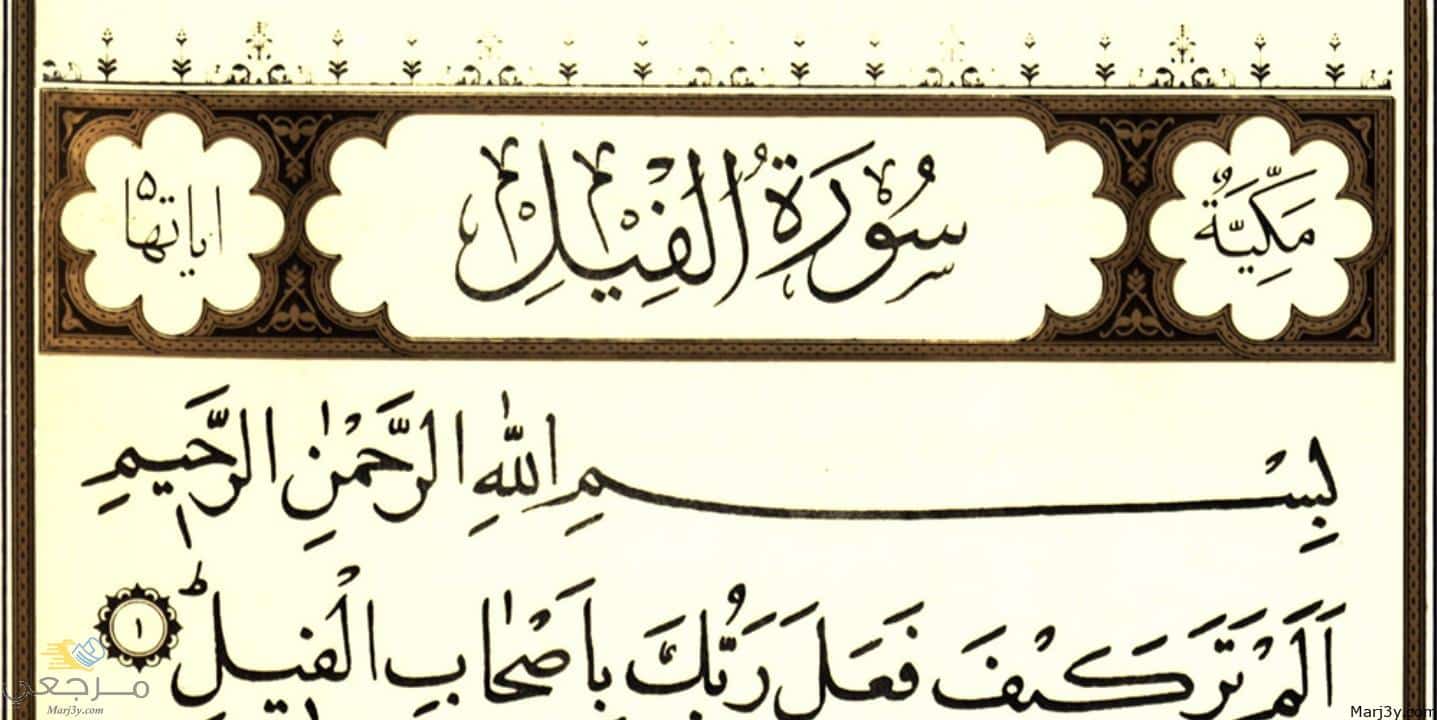 مَكِّيَّةٌ
سُورَةُ الْفِيلِ
اياتها ٥
بِسْمِ اللّٰهِ الرَّحْمٰنِ الرَّحِيمِ
اَلَمْ تَرَ كَيْفَ فَعَلَ رَبُّكَ بِاَصْحَابِ الْفِيلِۜ ١
مرجعي
Marj3y.com
Marj3y.com